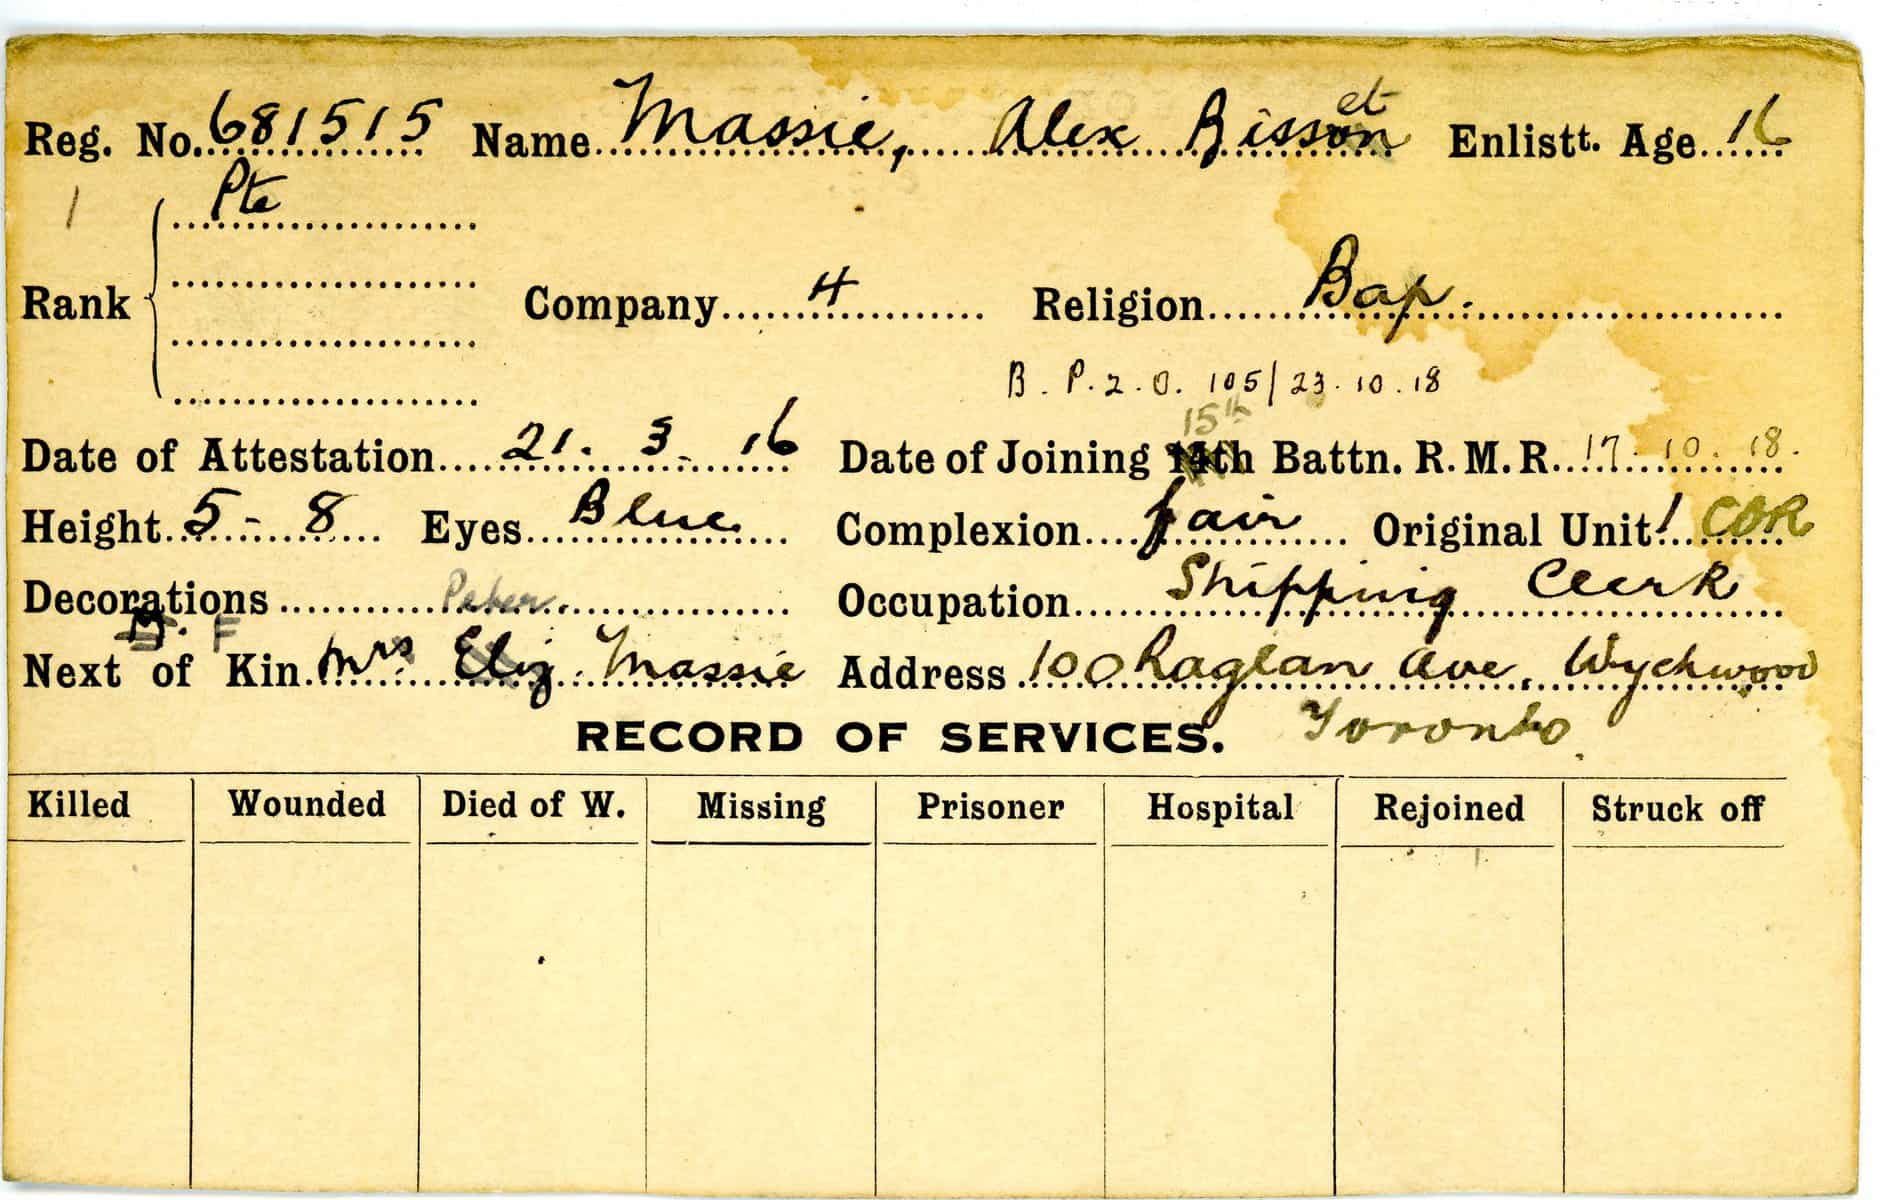 et
Reg. No. 681515 Name Massie, Alex Bisson Enlistt. Age 16
1 Pte
Rank Company 4 Religion Bap.
B. P. 2. O. 105/23.10.18
15th
Date of Attestation 21. 3. 16 Date of Joining 14th Battn. R.M.R. 17. 10. 18.
Height 5-8 Eyes Blue Complexion fair Original Unit 1 COR
Decorations Peter Occupation Shipping Clerk
M. F
Next of Kin Mrs Eliz Massie Address 100 Raglan Ave, Wychwood
RECORD OF SERVICES. Toronto
Killed Wounded Died of W. Missing Prisoner Hospital Rejoined Struck off